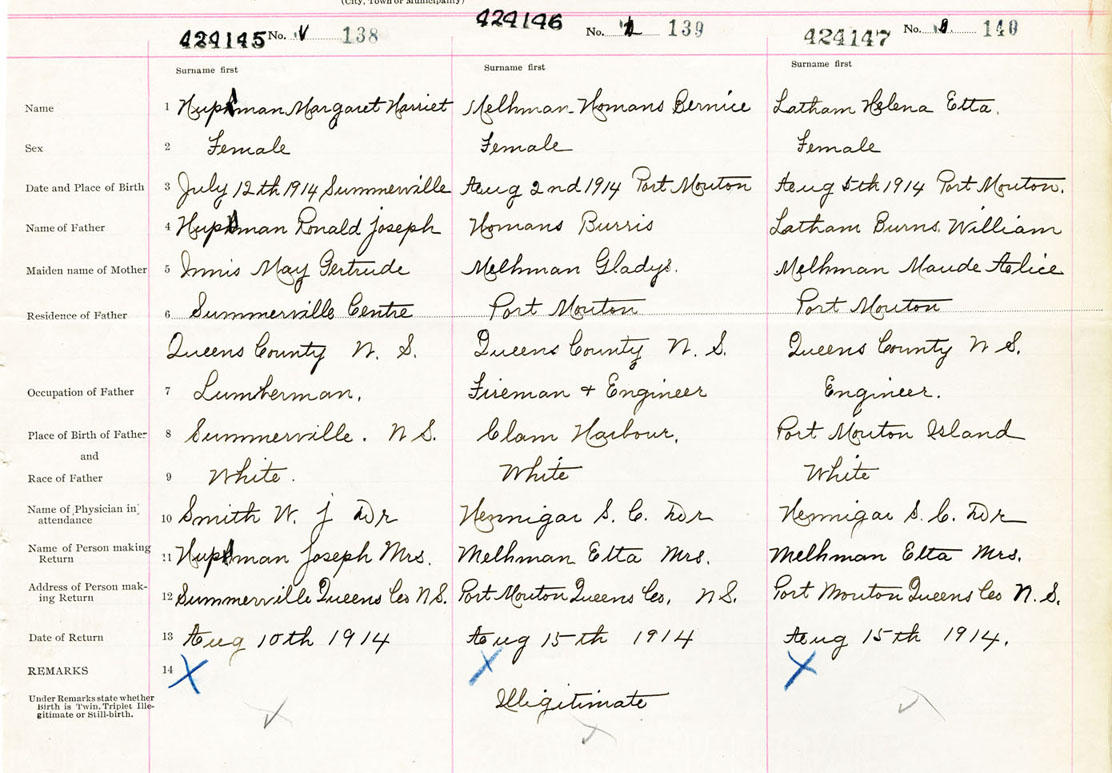 (City, Town or Municipality)
424145 No. 138 424146 No. 139 424147 No. 140
Surname first Surname first Surname first
Name 1 Hupman Margaret Harriet Melhman-Homans Bernice Latham Helena Etta.
Sex 2 Female Female Female
Date and Place of Birth 3 July 12th 1914 Summerville Aug 2nd 1914 Port Mouton Aug 5th 1914 Port Mouton.
Name of Father 4 Hupman Ronald Joseph Homans Burris Latham Burns William
Maiden name of Mother 5 Innis May Gertrude Melhman Gladys. Melhman Maude Alice
Residence of Father 6 Summerville Centre Port Mouton Port Mouton
Queens County N. S. Queens County N. S. Queens County N S.
Occupation of Father 7 Lumberman, Fireman + Engineer Engineer.
Place of Birth of Father 8 Summerville. N S. Clam Harbour, Port Mouton Island
and
Race of Father 9 White. White White
Name of Physician in
attendance 10 Smith W. J Dr Hennigar S. C. Dr Hennigar S. C. Dr
Name of Person making
Return 11 Hupman Joseph Mrs. Melhman Etta Mrs. Melhman Etta Mrs.
Address of Person mak-
ing Return 12 Summerville Queens Co N.S. Port Mouton Queens Co, N S. Port Mouton Queens Co N. S.
Date of Return 13 Aug 10th 1914 Aug 15th 1914 Aug 15th 1914.
REMARKS 14 X X X
Under Remarks state whether
Birth is Twin, Triplet Ille-
gitimate or Still-birth. Illigitimate